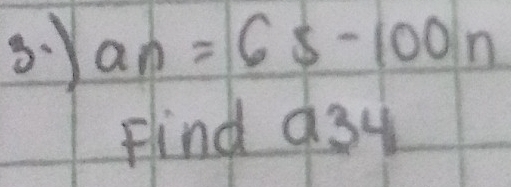 3.) an = 65-100n
Find a34